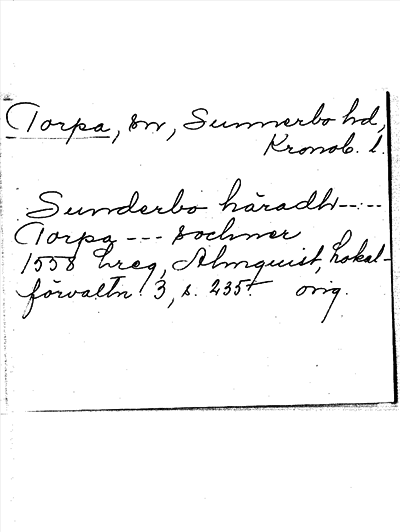 Torpa, sn, Sunnerbo hd,
Kronob. l.
Sunderbo häradh-----
Torpa --- sochner
1558 hreg, Almquist, Lokal-
förvaltn. 3, s. 235. orig.